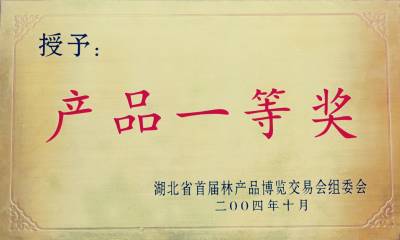 授予：
产品一等奖
湖北省首届林产品博览交易会组委会
二〇〇四年十月